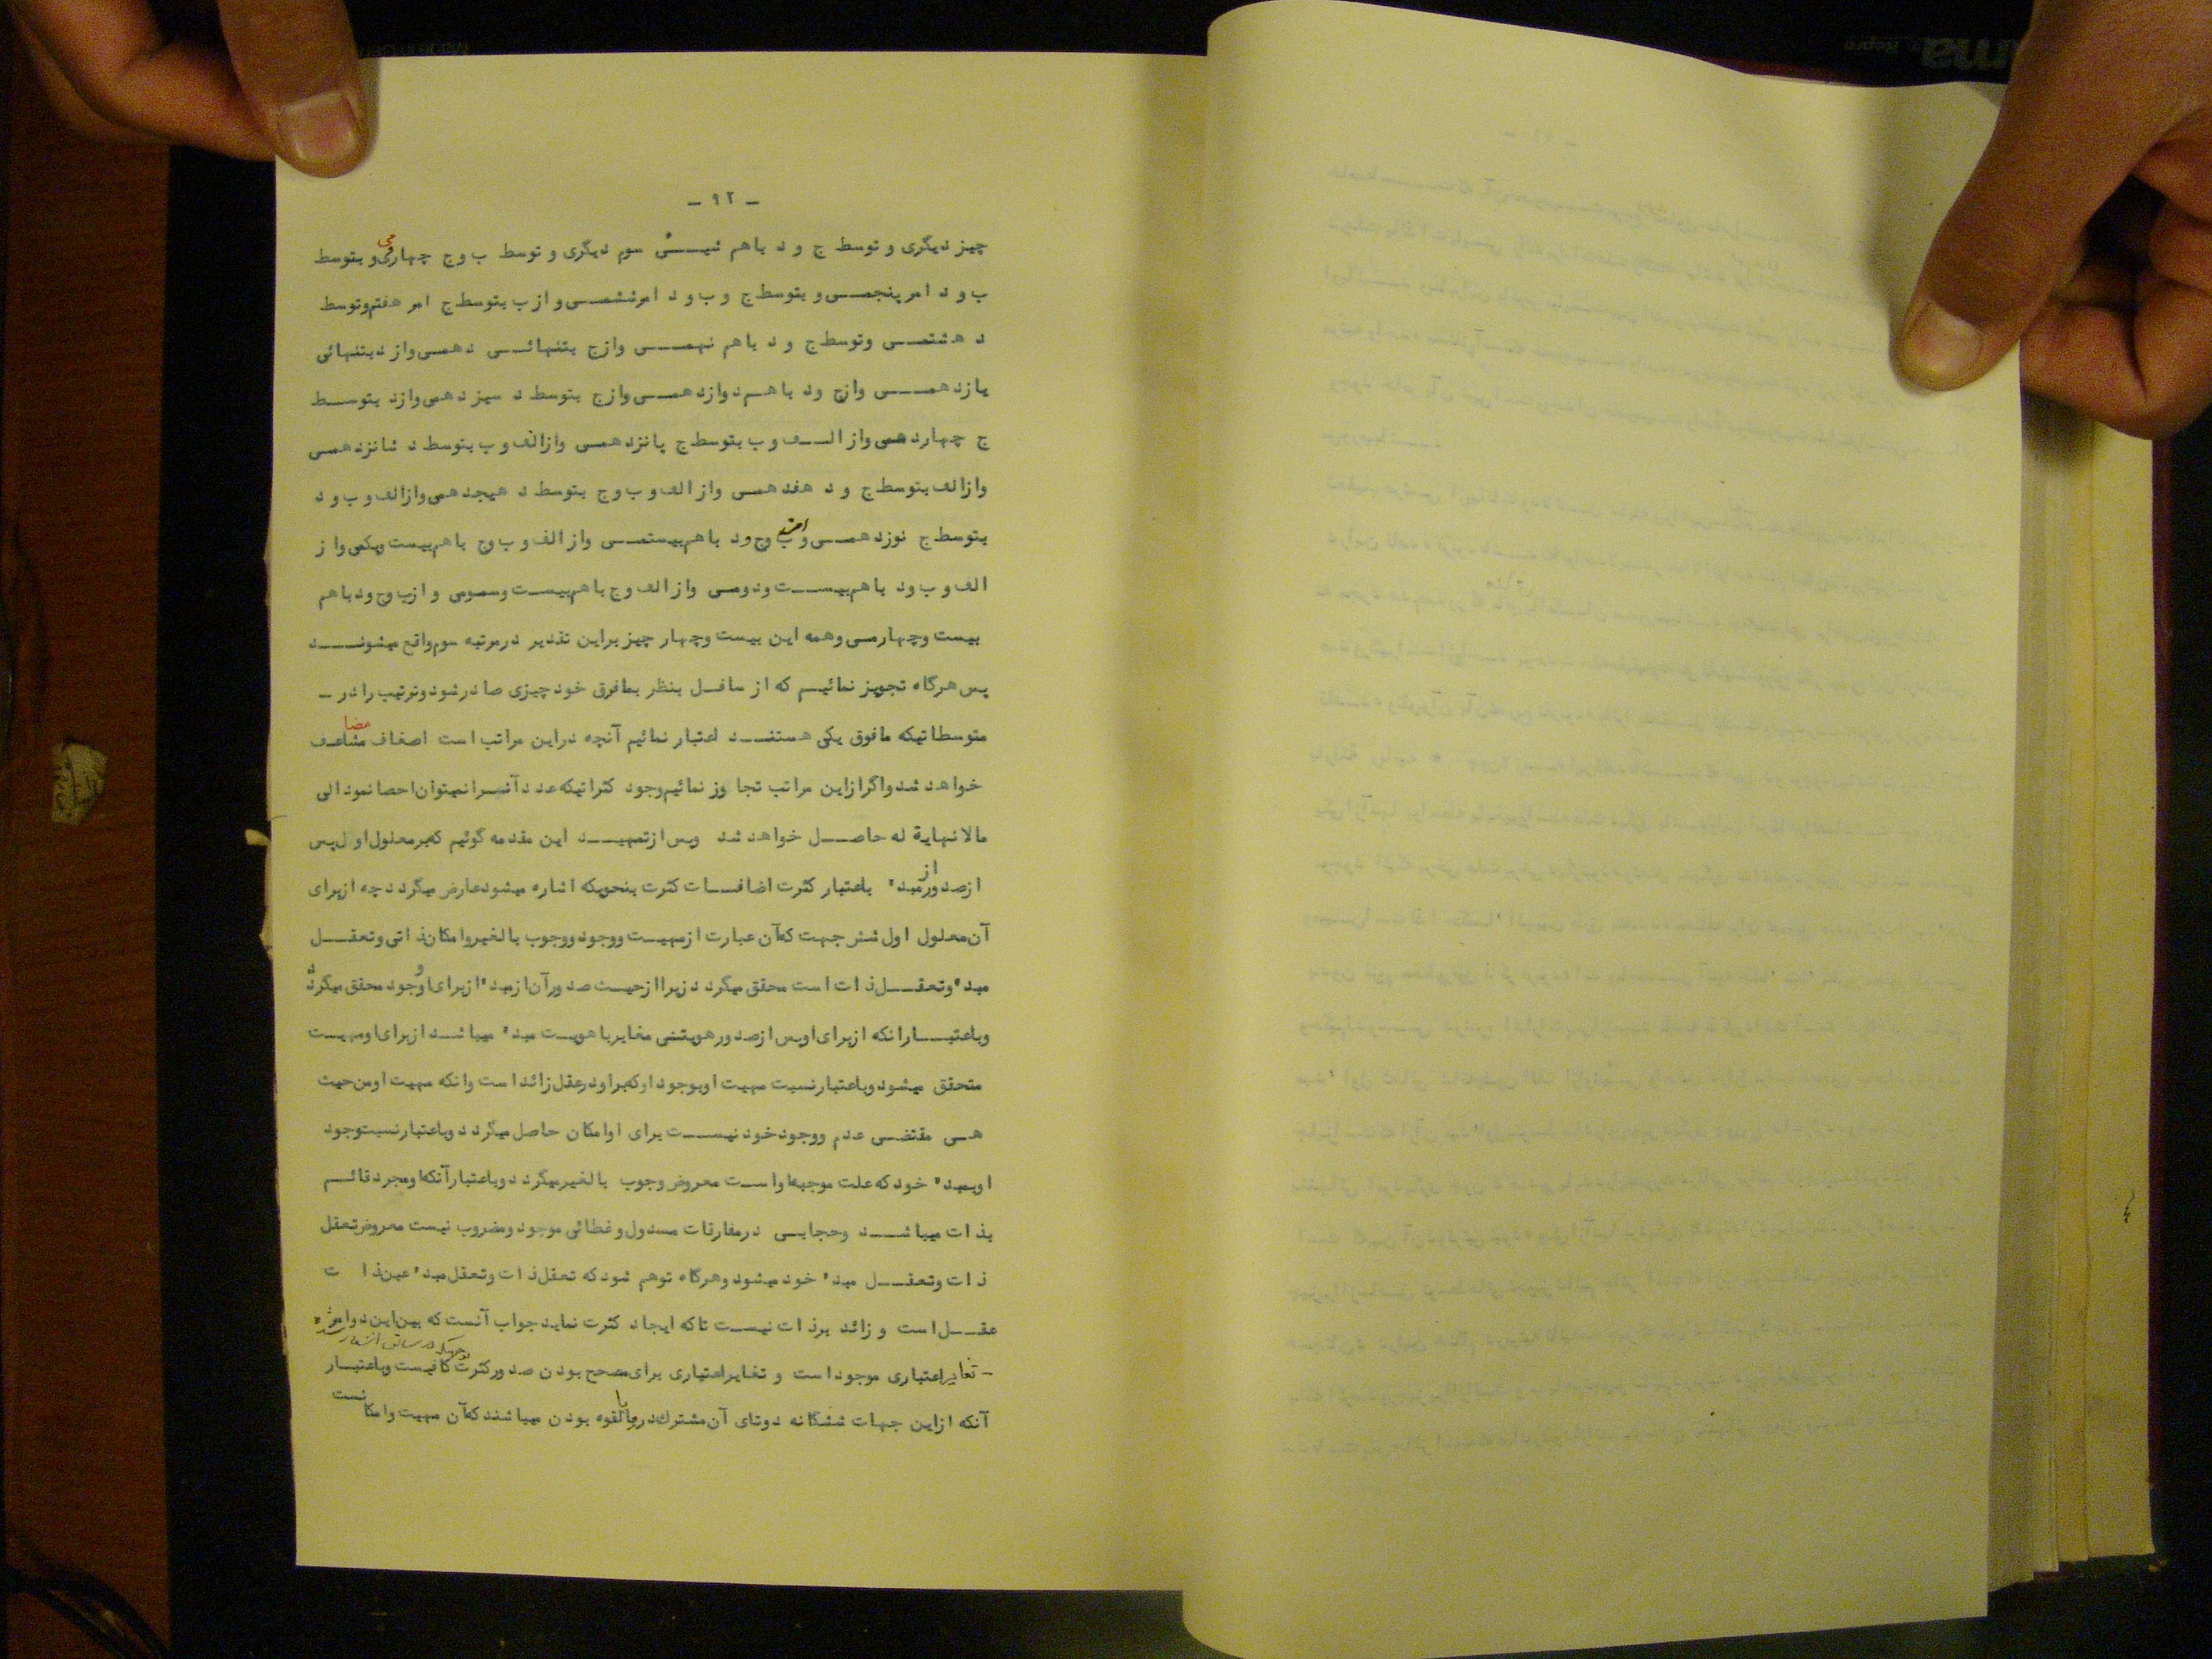 - ۹۲ -
چیز دیگری و توسط ج و د باهم شیئی سوم دیگری و توسط ب و ج چهارمی و بتوسط
ب و د امر پنجمی و بتوسط ج و ب و د امر ششمی و از ب بتوسط ج امر هفتم وتوسط
د هشتمی وتوسط ج و د باهم نهمی وازج بتنهائی دهمی واز د بتنهائی
یازدهمی وازج ود باهم دوازدهمی وازج بتوسط د سیزدهمی وازد بتوسط
ج چهاردهمی واز الف و ب بتوسط ج پانزدهمی وازالف و ب بتوسط د شانزدهمی
وازالف بتوسط ج و د هفدهمی واز الف و ب و ج بتوسط د هیجدهمی وازالف و ب و د
بتوسط ج نوزدهمی و ب وج ود باهم بیستمی واز الف و ب وج باهم بیست ویکمی واز
الف و ب ود باهم بیست ودومی واز الف وج باهم بیست وسومی و ازب وج ود باهم
بیست وچهارمی وهمه این بیست وچهار چیز براین تقدیر درمرتبه سوم واقع میشوند
پس هرگاه تجویز نمائیم که از سافل بنظر بمافوق خود چیزی صادر شود وترتیب را در -
متوسطاتیکه مافوق یکی هستند اعتبار نمائیم آنچه دراین مراتب است اضعاف مضاعف
خواهد شد واگر ازاین مراتب تجاوز نمائیم وجود کثراتیکه عدد آنرا نمیتوان احصا نمود الی
مالانهایة له حاصل خواهد شد وپس ازتمهید این مقدمه گوئیم که بر معلول اول پس
ازصدور از مبدء باعتبار کثرت اضافات کثرت بنحویکه اشاره میشود عارض میگردد چه ازبرای
آن معلول اول شش جهت که آن عبارت ازمهیت ووجود ووجوب بالغیر وامکان ذاتی وتعقل
مبدء وتعقل ذات است محقق میگردد زیرا ازحیث صدور آن ازمبدء ازبرای او وجود محقق میگردد
وباعتبار انکه ازبرای اوپس ازصدور هویتی مغایر باهویت مبدء میباشد ازبرای اومهیت
متحقق میشود وباعتبار نسبت مهیت اوبوجود اوکه بر اودرعقل زائد است وانکه مهیت اومن حیث
هی مقتضی عدم ووجود خود نیست برای اوامکان حاصل میگردد وباعتبار نسبت وجود
اوبمبدء خود که علت موجبه اواست معروض وجوب بالغیر میگردد وباعتبار آنکه اومجرد قائم
بذات میباشد وحجابی درمفارقات مسدول وغطائی موجود ومضروب نیست معروض تعقل
ذات وتعقل مبدء خود میشود وهرگاه توهم شود که تعقل ذات وتعقل مبدء عین ذات
عقل است و زائد برذات نیست تاکه ایجاد کثرت نماید جواب آنست که بین این دوامر
- تغایر اعتباری موجود است و تغایر اعتباری برای مصحح بودن صدور کثرت کافیست وباعتبار
آنکه ازاین جهات ششگانه دوتای آن مشترک در بالقوه بودن میباشند که آن مهیت وامکانست